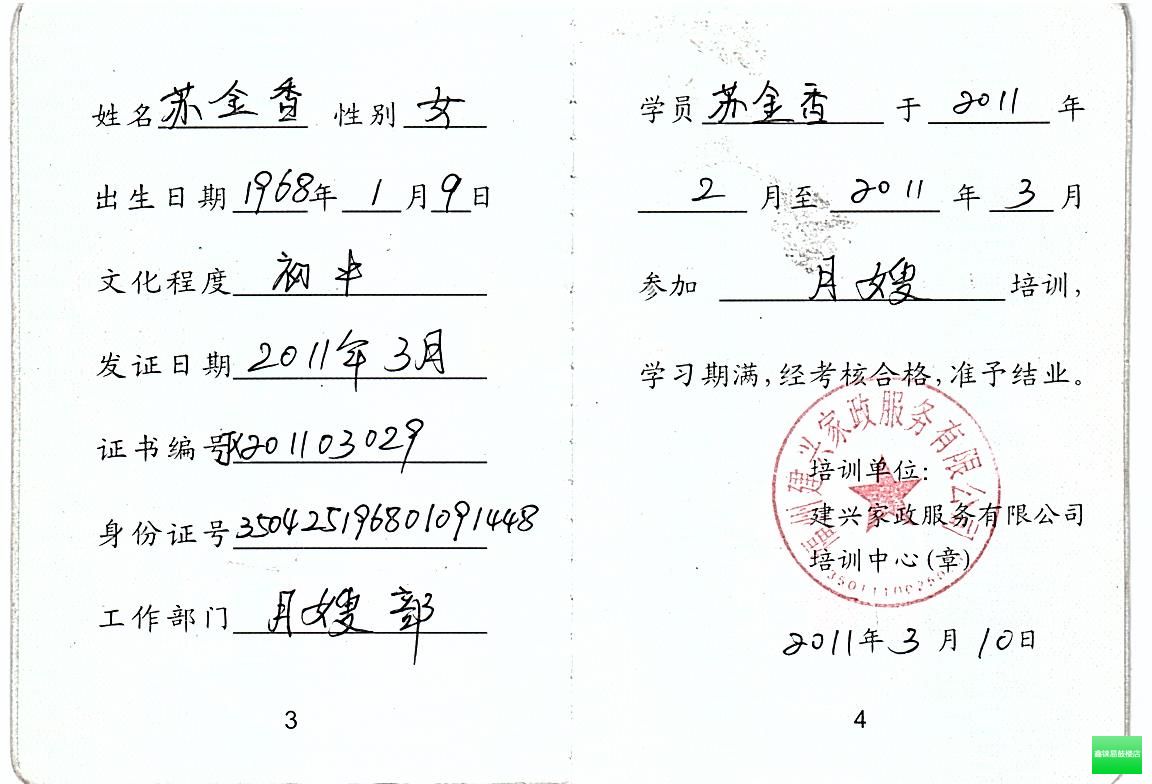 姓名 苏金香 性别 女
出生日期 1968年 1月9日
文化程度 初中
发证日期 2011年3月
证书编号 201103029
身份证号 350425196801091448
工作部门 月嫂部
3
学员 苏金香 于 2011 年
2 月至 2011 年 3 月
参加 月嫂 培训,
学习期满,经考核合格,准予结业。
建兴家政服务有限公司
培训单位:
建兴家政服务有限公司
培训中心(章)
2011年3月10日
4